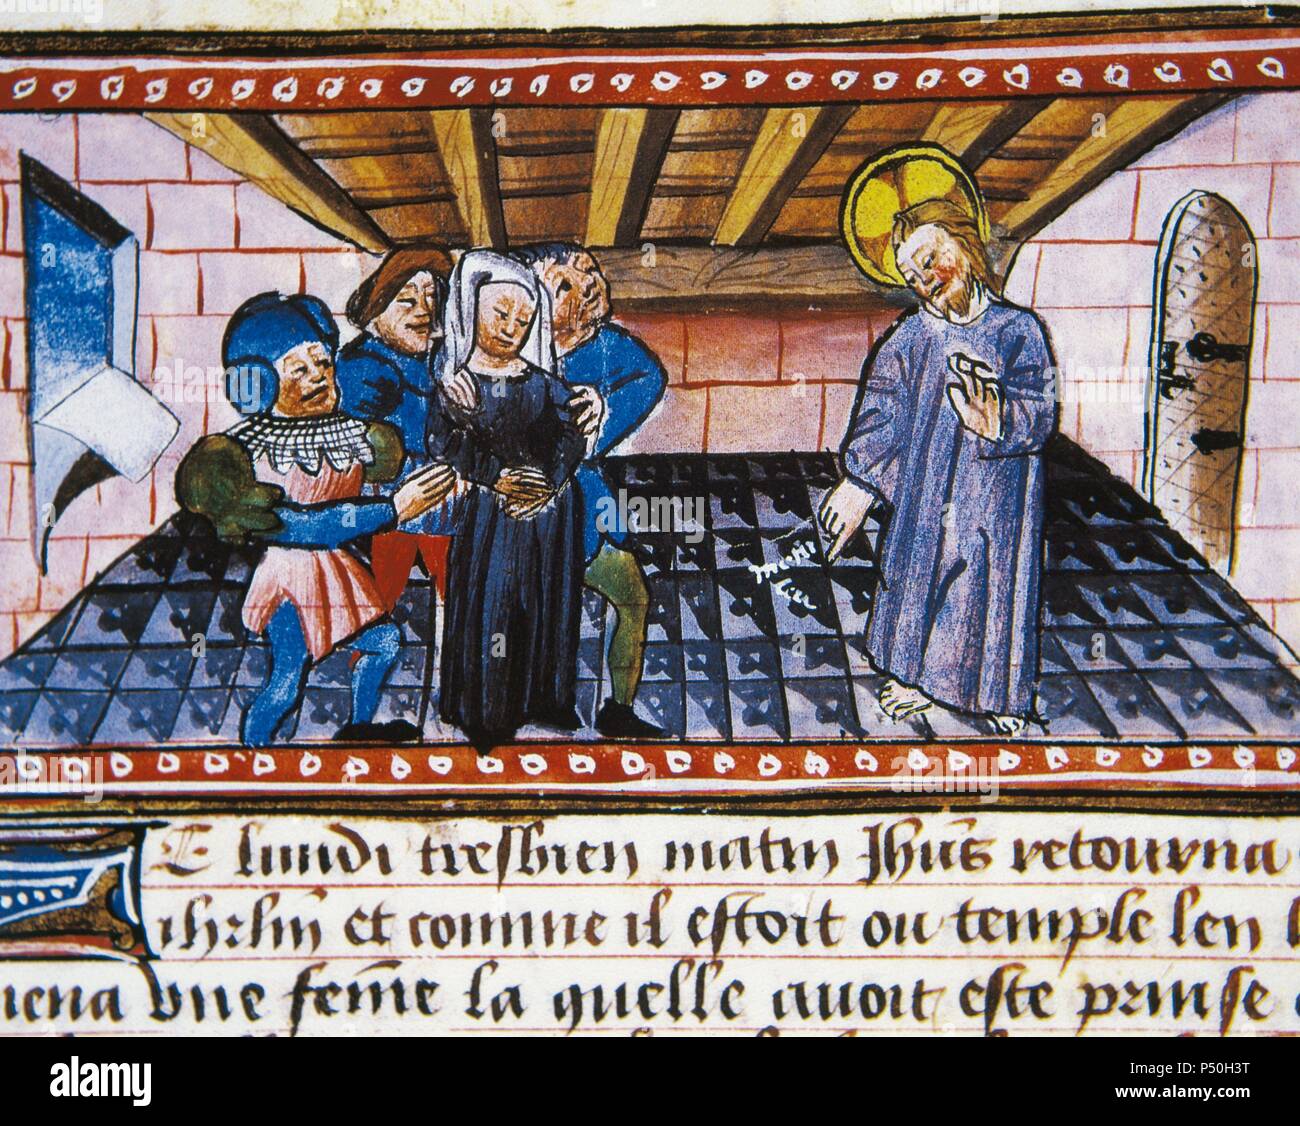 E lundi tresbien matin Jhūs retourna
ihrlm̄ et comme il estoit ou temple len
mena une fem̄e la quelle avoit este prinse
alamy
Image ID: P50H3T
www.alamy.com